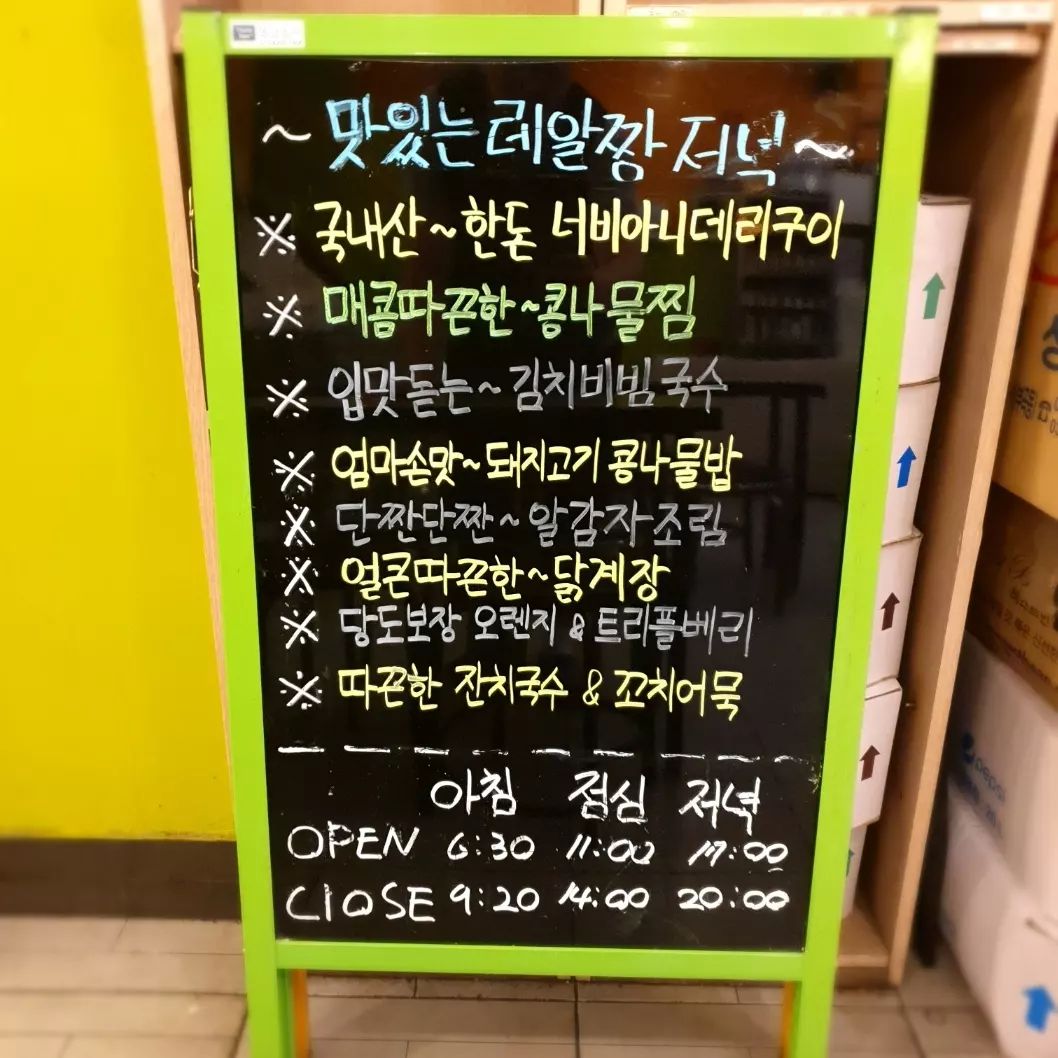 ~ 맛있는 레알짱 저녁 ~
※ 국내산~한돈 너비아니데리구이
※ 매콤따끈한~콩나물찜
※ 입맛돋는~김치비빔국수
※ 엄마손맛~돼지고기 콩나물밥
※ 단짠단짠~알감자조림
※ 얼큰따끈한~닭계장
※ 당도보장 오렌지 & 트리플베리
※ 따끈한 잔치국수 & 꼬치어묵
아침 점심 저녁
OPEN 6:30 11:00 17:00
ClOSE 9:20 14:00 20:00
pepsi